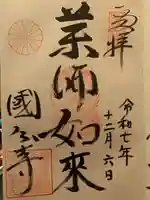 奉拝
令和七年
十二月六日
薬師如來
國分寺